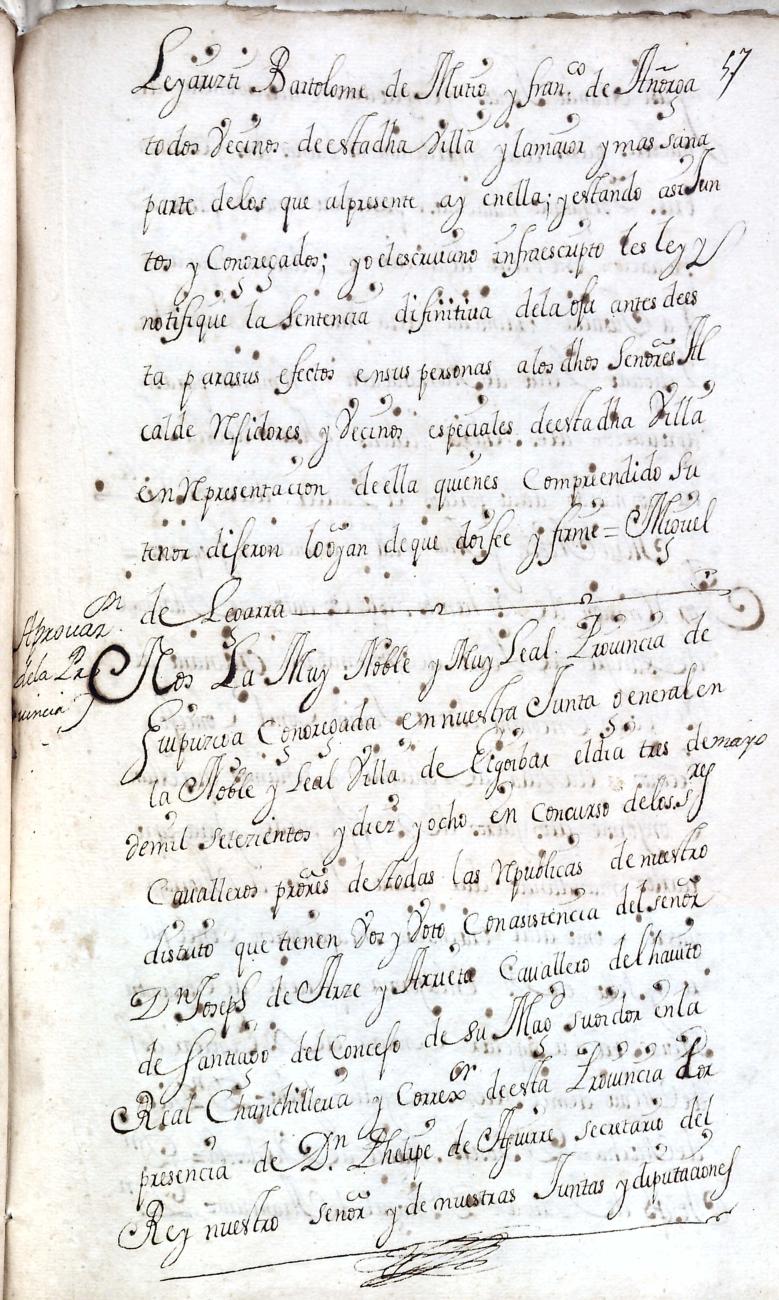 57
Leyaurzti Bartolome de Mutio y fran.co de Añoroa
todos Vecinos deesta dha Villa y lamaior y mas sana
parte delos que alpresente ay enella; y estando assi Jun
tos y Congregados; yo elescriuano infraescripto les ley y
notifique la Sentencia difinitiva dela ofa antes dees
ta parasus efectos ensus personas alos dhos Señores Al
calde Rexidores y Vecinos especiales deesta dha Villa
en Representacion de ella quienes Compreendido su
tenor dijeron looyan deque doi fee y firme = Miguel
de Legarra
Aprouaz.n
dela Pr
uincia
Nos La Muy Noble y Muy Leal Prouincia de
Guipuzcoa Congregada en nuestra Junta general en
la Noble y Leal Villa de Elgoibar eldia tres demayo
demil setezientos y diez y ocho en Concurso delos s.res
Caualleros prores detodas las Republicas de nuestro
distrito que tienen Voz y Voto Conasistencia del señor
D.n Joseph de Arze y Arrieta Cauallero del hauito
de santiago del Consejo de Su Mag.d su oidor en la
Real Chanchilleria y Correx.or de esta Prouincia Por
presencia de D.n Phelipe de Aguirre secretario del
Rey nuestro señor y de nuestras Juntas y diputaciones